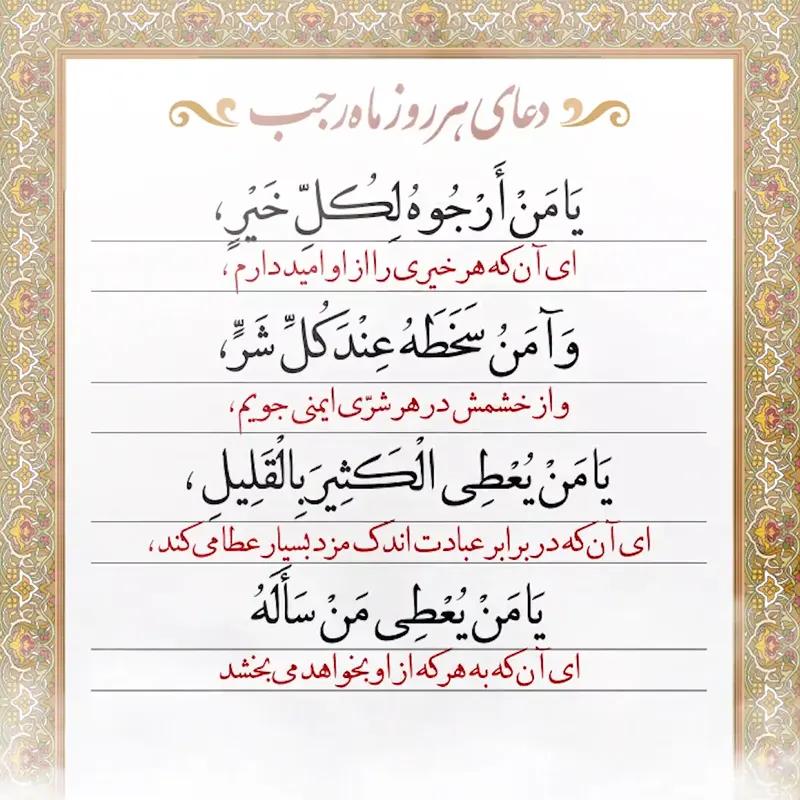 دعای هر روز ماه رجب
يَا مَنْ أَرْجُوهُ لِكُلِّ خَيْرٍ،
ای آن‌که هر خیری را از او امید دارم،
وَ آمَنُ سَخَطَهُ عِنْدَ كُلِّ شَرٍّ،
و از خشمش در هر شرّی ایمنی جویم،
يَا مَنْ يُعْطِی الْكَثِيرَ بِالْقَلِيلِ،
ای آن‌که در برابر عبادت اندک مزد بسیار عطا می‌کند،
يَا مَنْ يُعْطِی مَنْ سَأَلَهُ
ای آن‌که به هر که از او بخواهد می‌بخشد